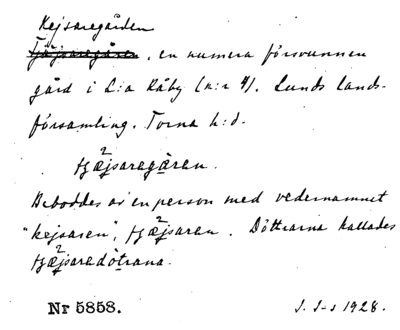 Kejsaregården
Tjäjsaregåren, en numera försvunnen
gård i L:a Råby (n:r 4). Lunds lands-
församling. Torna h:d.
tjæjsaregåran.
Beboddes av en person med vedernamnet
"kejsaren", tjæjsaran. Döttrarna kallades
tjæjsaredötrana.
Nr 5858. J. I-s 1928.